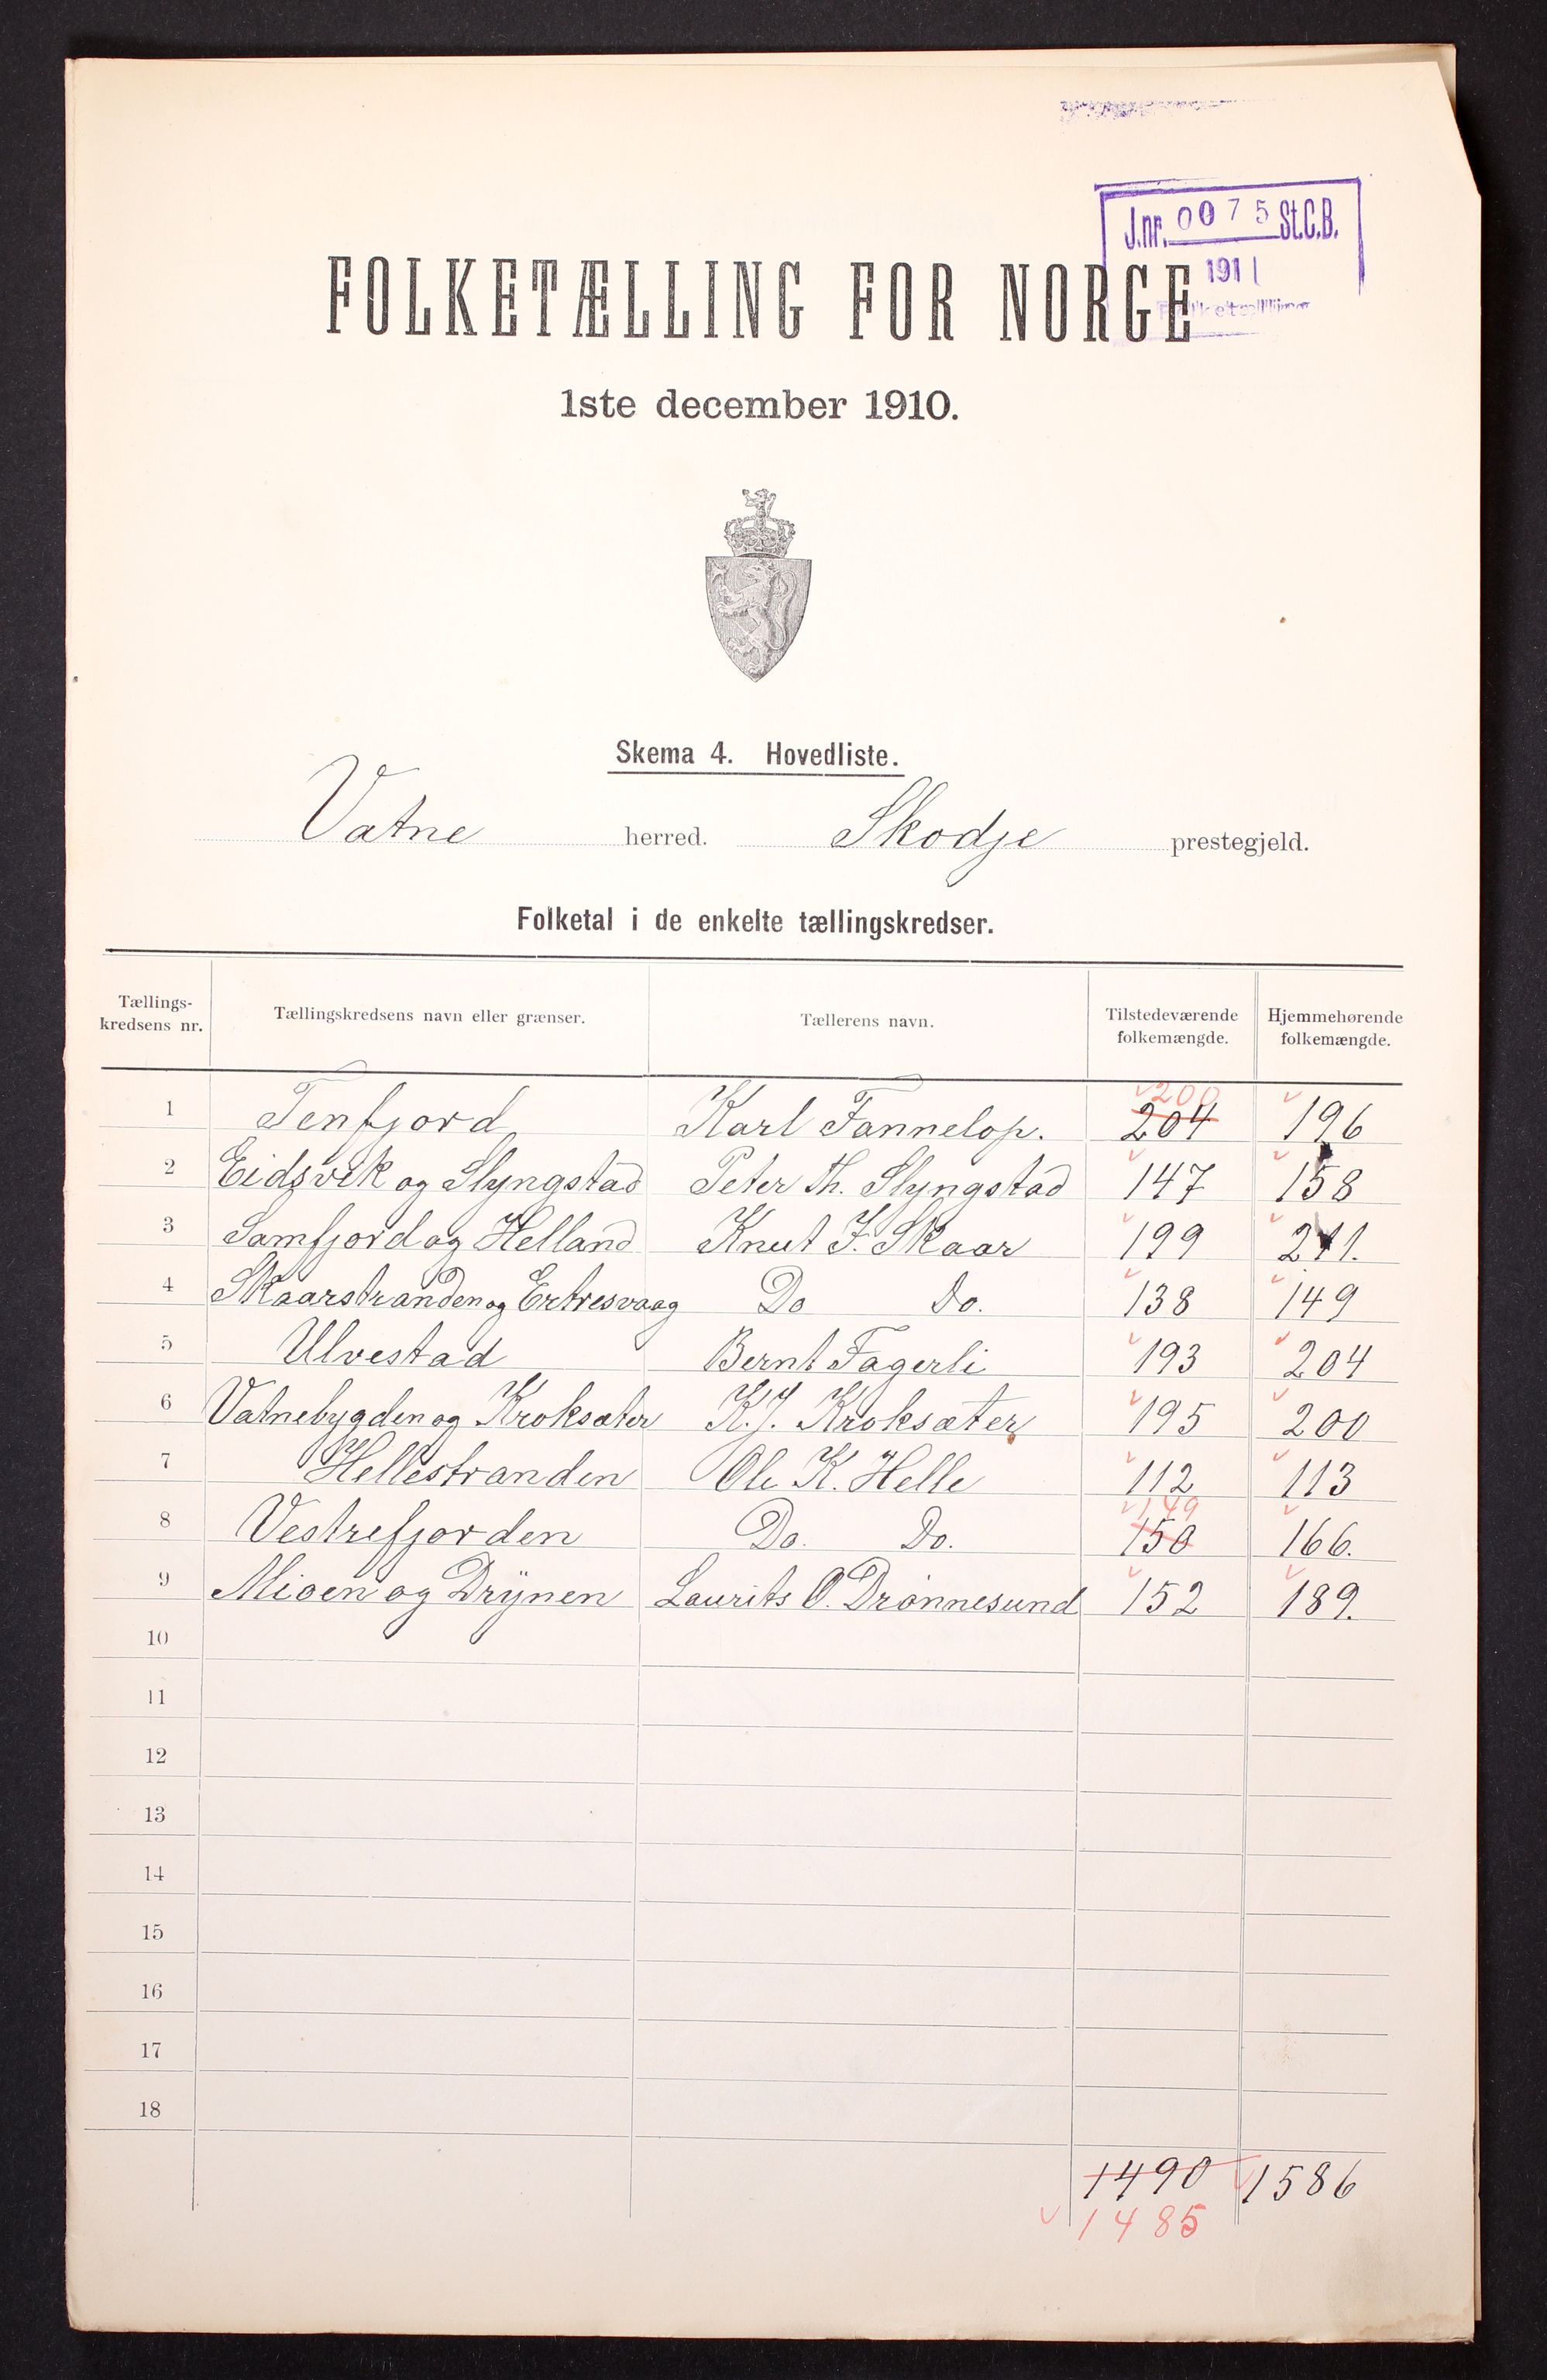 J.nr. 0075 St.C.B.
1911
Folketælling
FOLKETÆLLING FOR NORGE
1ste december 1910.
Skema 4. Hovedliste.
Vatne herred. Skodje prestegjeld.
Folketal i de enkelte tællingskredser.
Tællings-kredsens nr. Tællingskredsens navn eller grænser. Tællerens navn. Tilstedeværende folkemængde. Hjemmehørende folkemængde.
200
1 Tenfjord Karl Fannelop. 204 196
2 Eidsvik og Slyngstad Peter Th. Slyngstad 147 158
3 Samfjord og Helland Knut J. Skaar 199 211.
4 Skaarstranden og Ertresvaag Do Do. 138 149
5 Ulvestad Bernt Fagerli 193 204
6 Vatnebygden og Kroksæter K. J. Kroksæter 195 200
7 Hellestranden Ole K. Helle 112 113
149
8 Vestrefjorden Do. Do. 150 166.
9 Mioen og Drÿnen Laurits O. Drønnesund 152 189.
10
11
12
13
14
15
16
17
18
1490 1586
1485